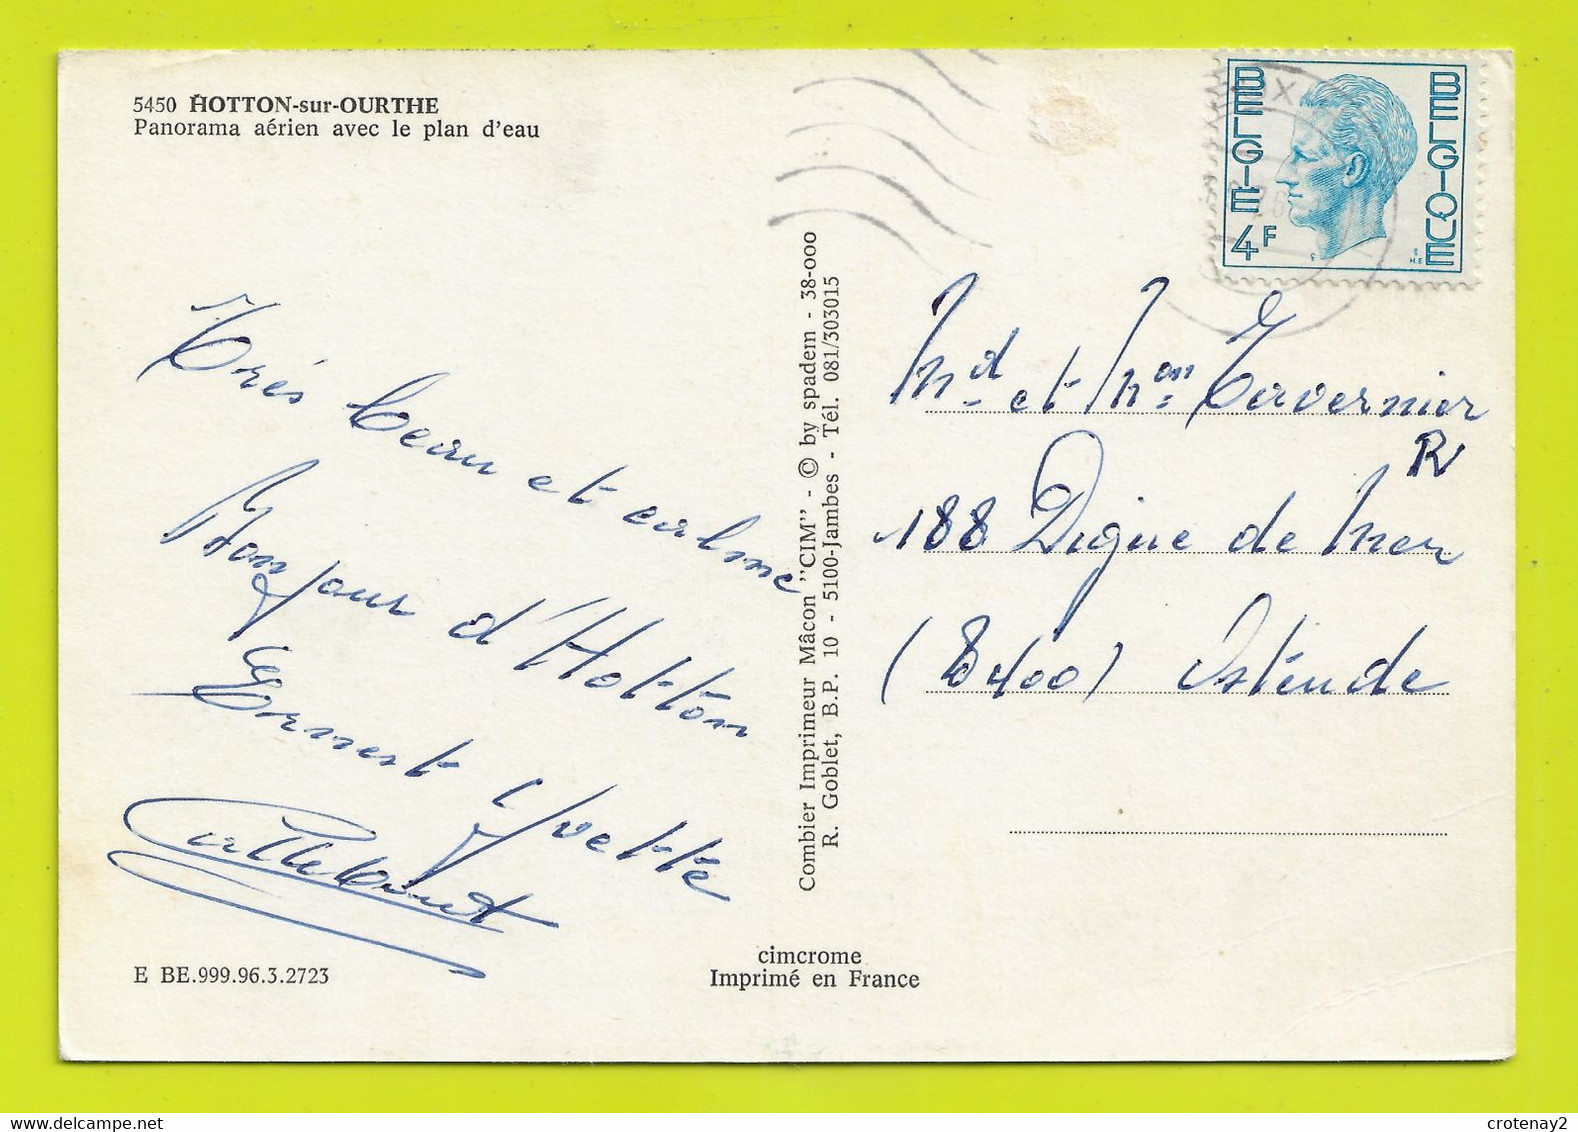 5450 HOTTON-sur-OURTHE
Panorama aérien avec le plan d'eau
BELGIE 4F
BELGIQUE
Très beau et calme
Bonjour d'Hotton
Ernest Yvette
Combier Imprimeur Mâcon "CIM" - © by spadem - 38-000
R. Goblet, B.P. 10 - 5100-Jambes - Tél. 081/303015
Md et Mon Tavernier
R
188 Digue de Mer
(8400) Osténde
E BE.999.96.3.2723
cimcrome
Imprimé en France
crotenay2